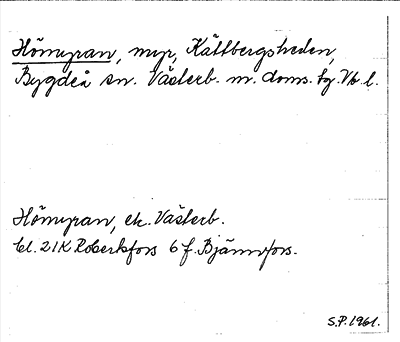 Hömyran, myr, Kältbergsheden,
Bygdeå sn. Västerb. m. doms. tg. Vb. l.
Hömyran, ek. Västerb.
bl. 21K Robertsfors 6 f. Bjännfors.
S.P. 1961.